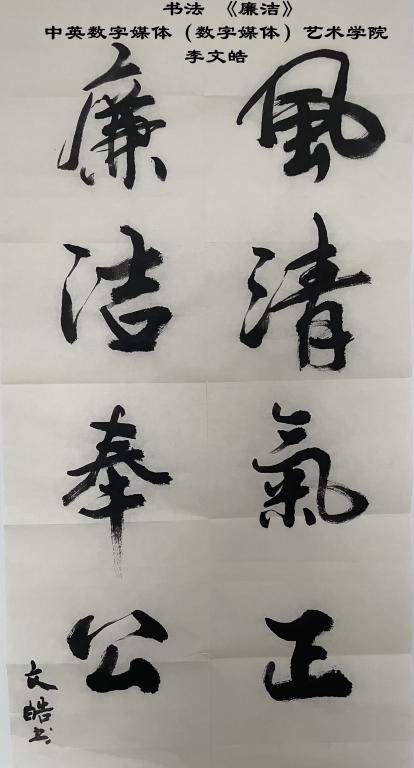 书法 《廉洁》
中英数字媒体（数字媒体）艺术学院
李文皓
風清氣正
廉洁奉公
文皓书